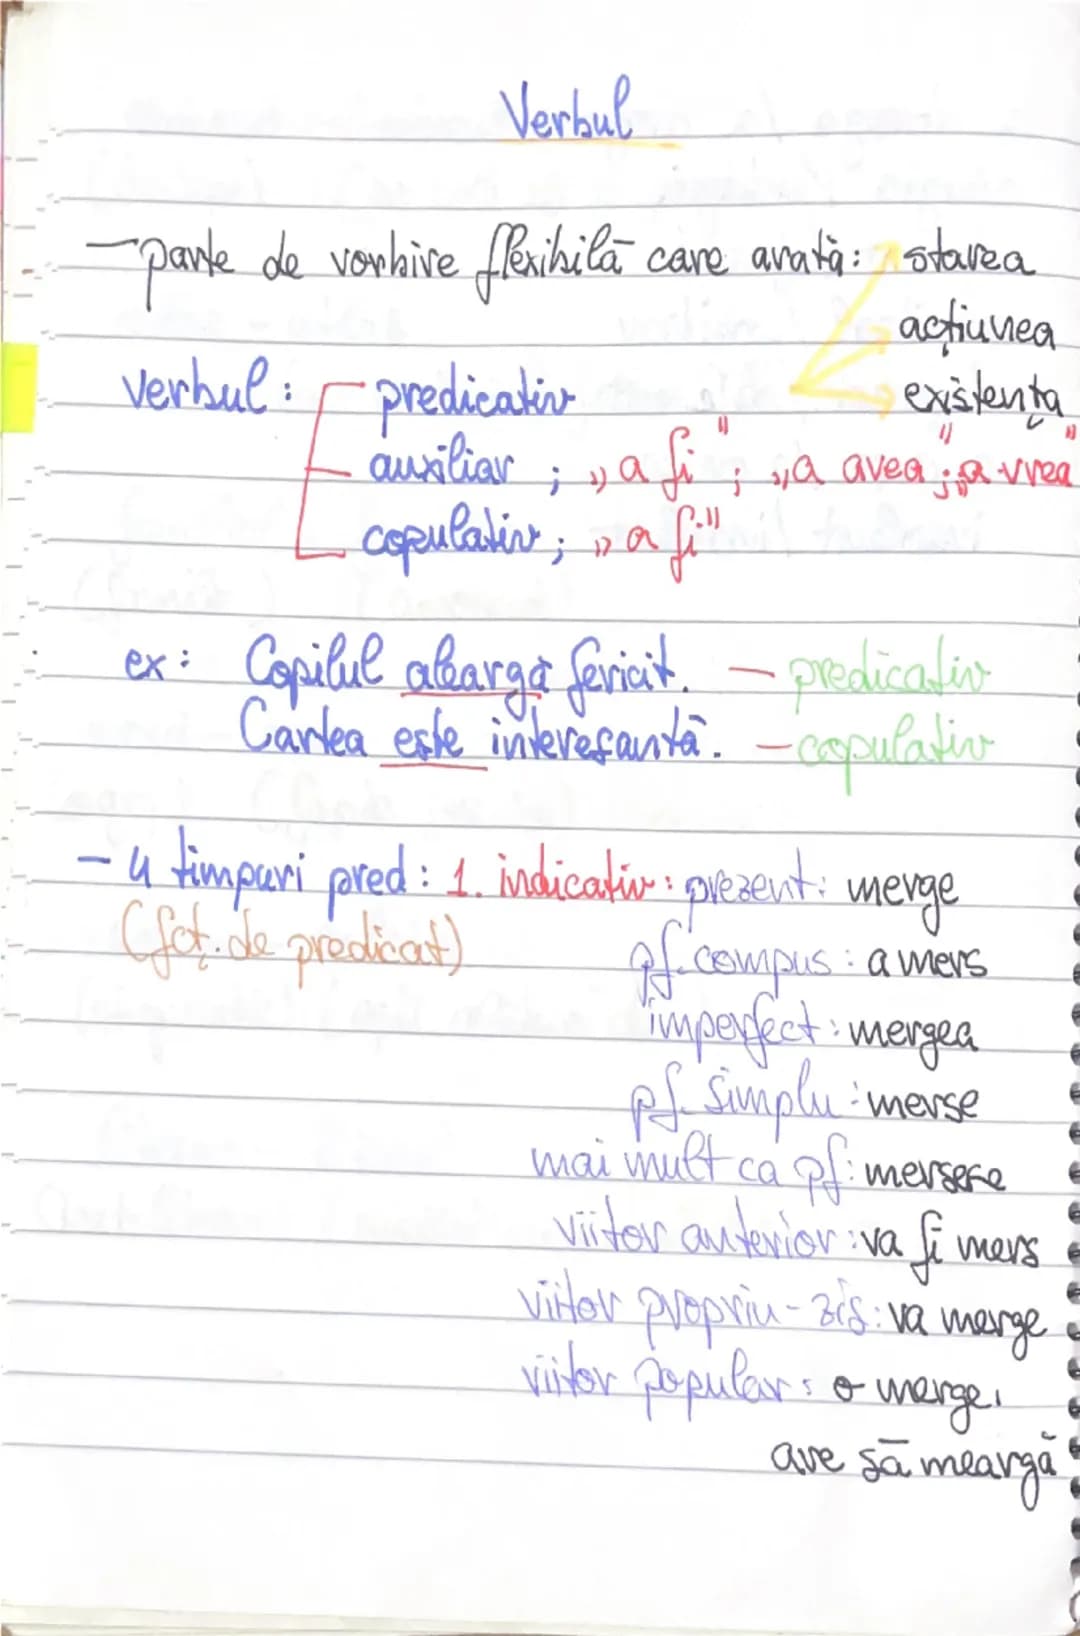 Verbul
- parte de vorbire flexibilă care arată: starea
acțiunea
existența
verbul: predicativ
auxiliar ; „a fi" ; „a avea" ; „a vrea"
copulativ ; „a fi"
ex: Copilul aleargă fericit. - predicativ
Cartea este interesantă. - copulativ
- 4 timpuri pred: 1. indicativ: prezent: merge
(fct. de predicat)
pf. compus: a mers
imperfect: mergea
pf. simplu: merse
mai mult ca pf: mersese
viitor anterior: va fi mers
viitor propriu-zis: va merge
viitor popular: o merge,
are să meargă